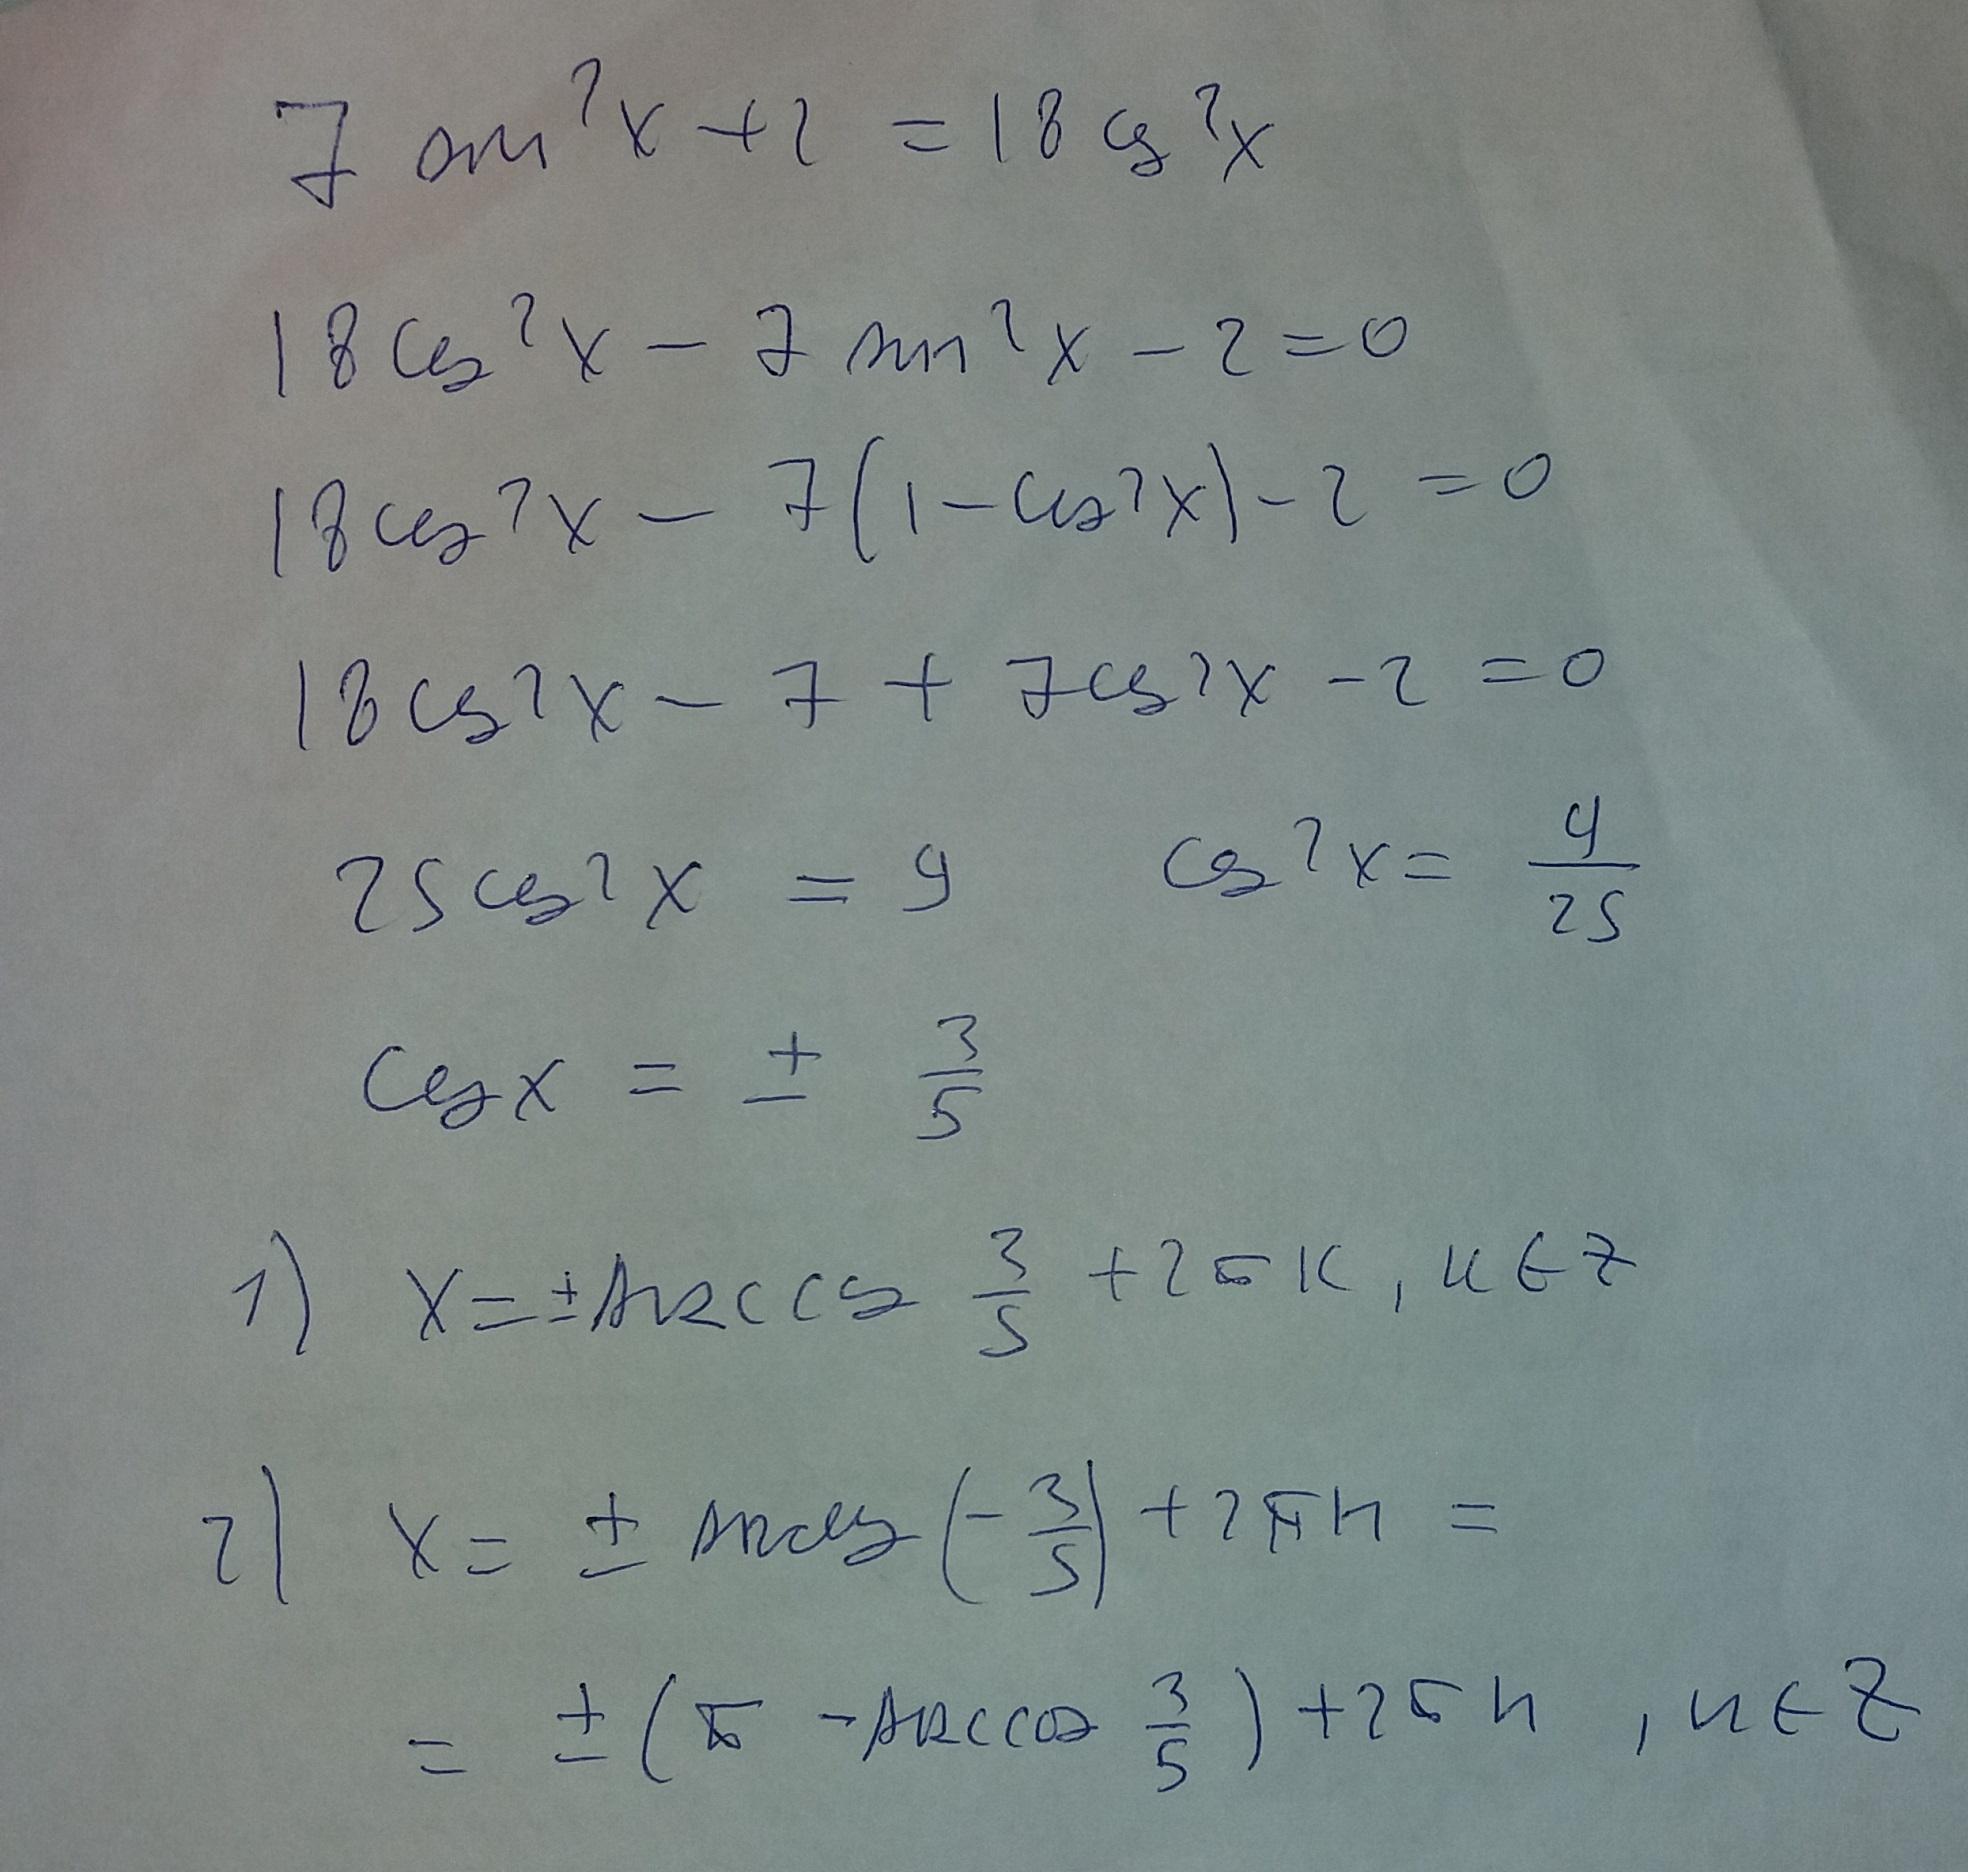 7 sin²x + 2 = 18 cos²x
18 cos²x - 7 sin²x - 2 = 0
18 cos²x - 7(1 - cos²x) - 2 = 0
18 cos²x - 7 + 7 cos²x - 2 = 0
25 cos²x = 9 cos²x = 9/25
cos x = ± 3/5
1) x = ± arccos 3/5 + 2πk, k ∈ Z
2) x = ± arccos (-3/5) + 2πn =
= ± (π - arccos 3/5) + 2πn, n ∈ Z